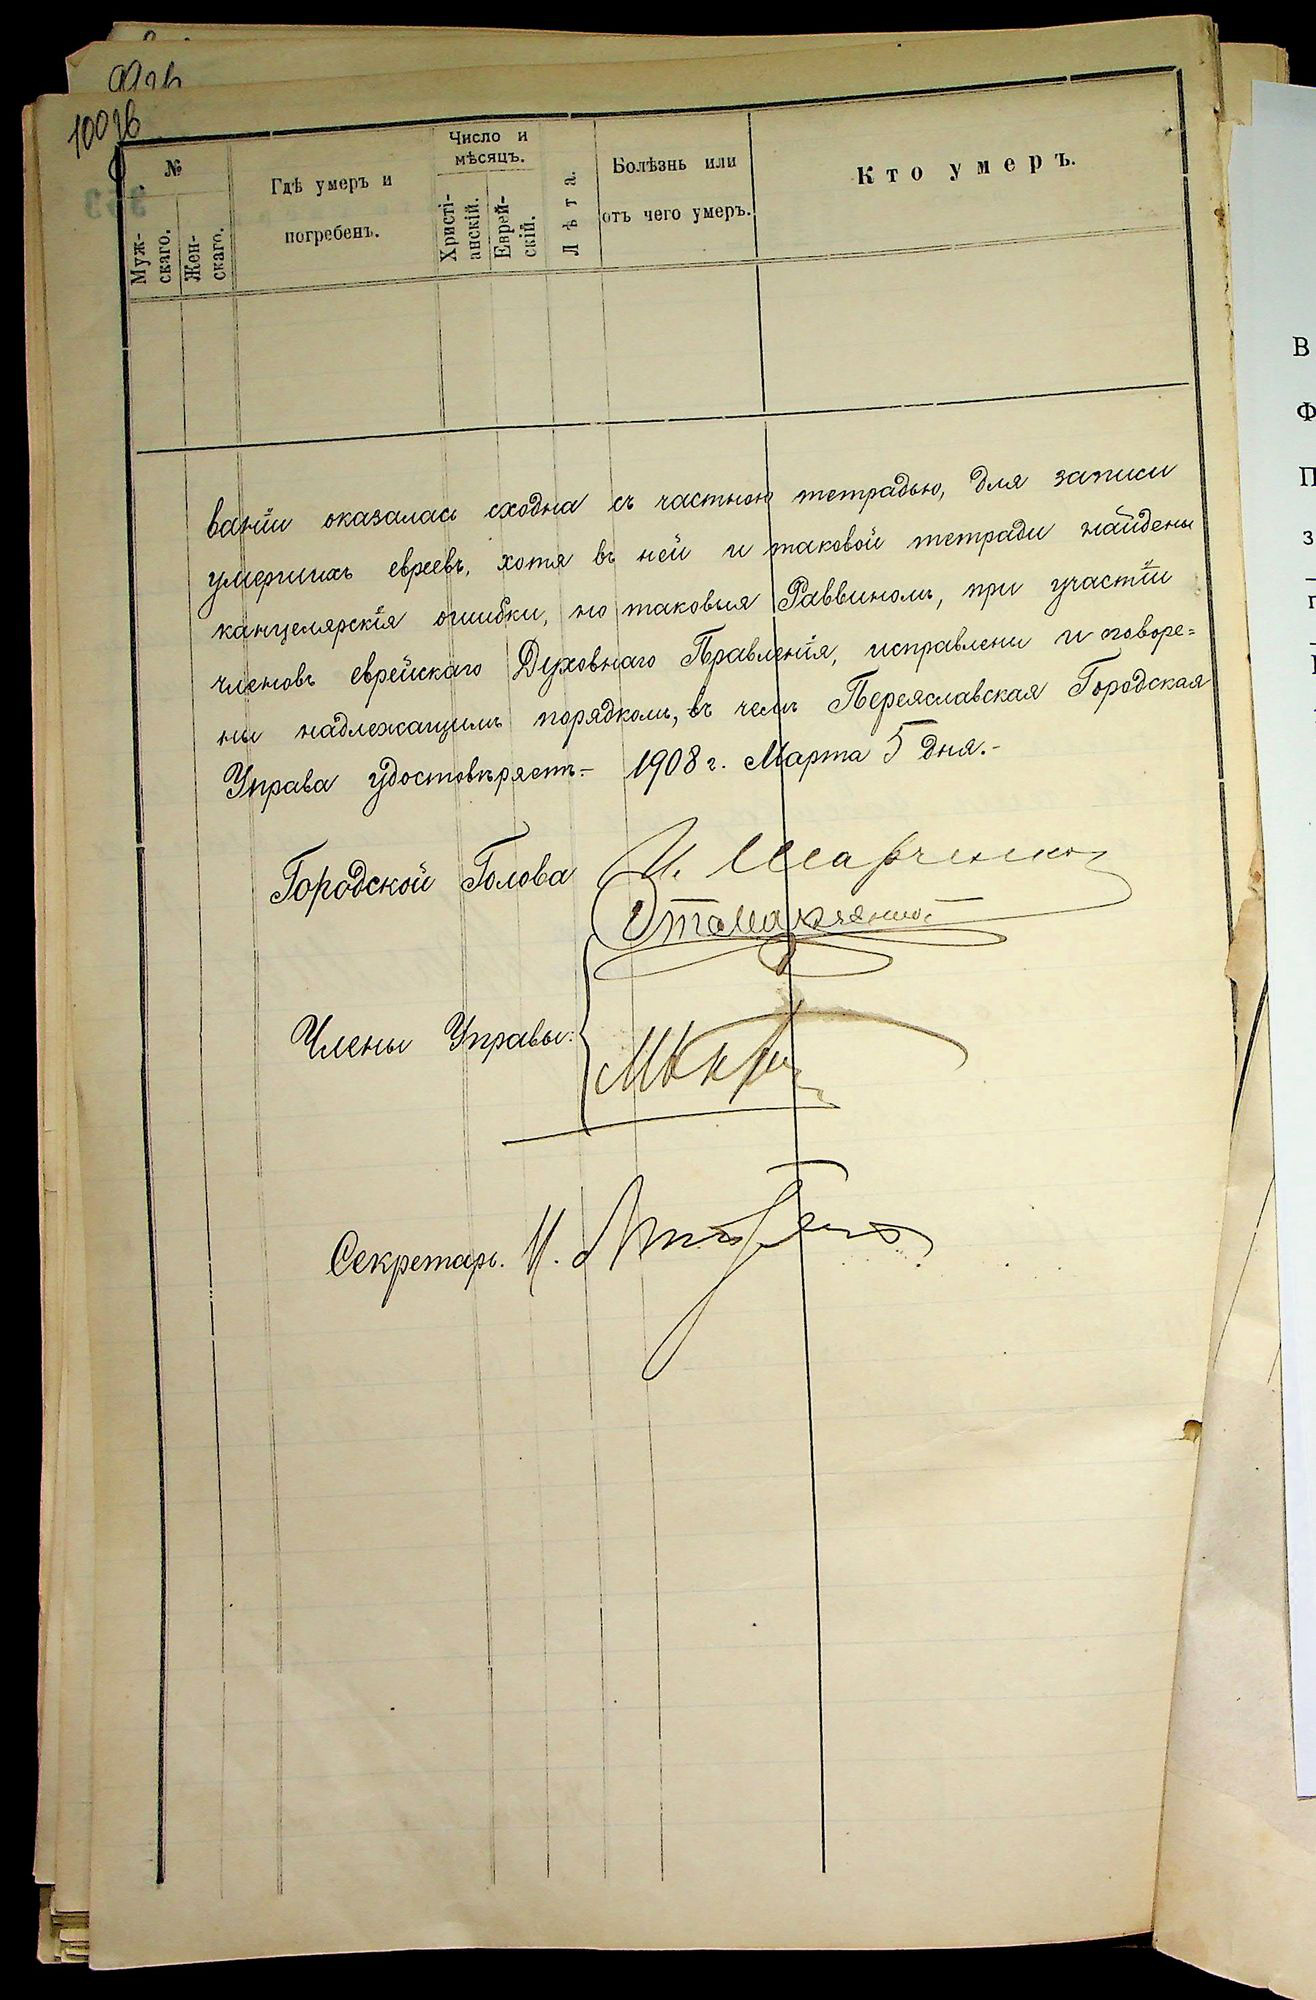 100 зв
№
Муж-
скаго.
Жен-
скаго.
Гдѣ умеръ и
погребенъ.
Число и
мѣсяцъ.
Христі-
анскій.
Еврей-
скій.
Лѣта.
Болѣзнь или
отъ чего умеръ.
Кто умеръ.
ваніи оказалась сходна съ частною тетрадью, для записи
умершихъ евреевъ, хотя въ ней и таковой тетради найдены
канцелярскія ошибки, но таковыя Раввиномъ, при участіи
членовъ еврейскаго Духовнаго Правленія, исправлены и оговоре=
ны надлежащимъ порядкомъ, въ чемъ Переяславская Городская
Управа удостовѣряетъ.– 1908 г. Марта 5 дня.–
Городской Голова
Члены Управы:
Секретарь. И.
В
Ф
П